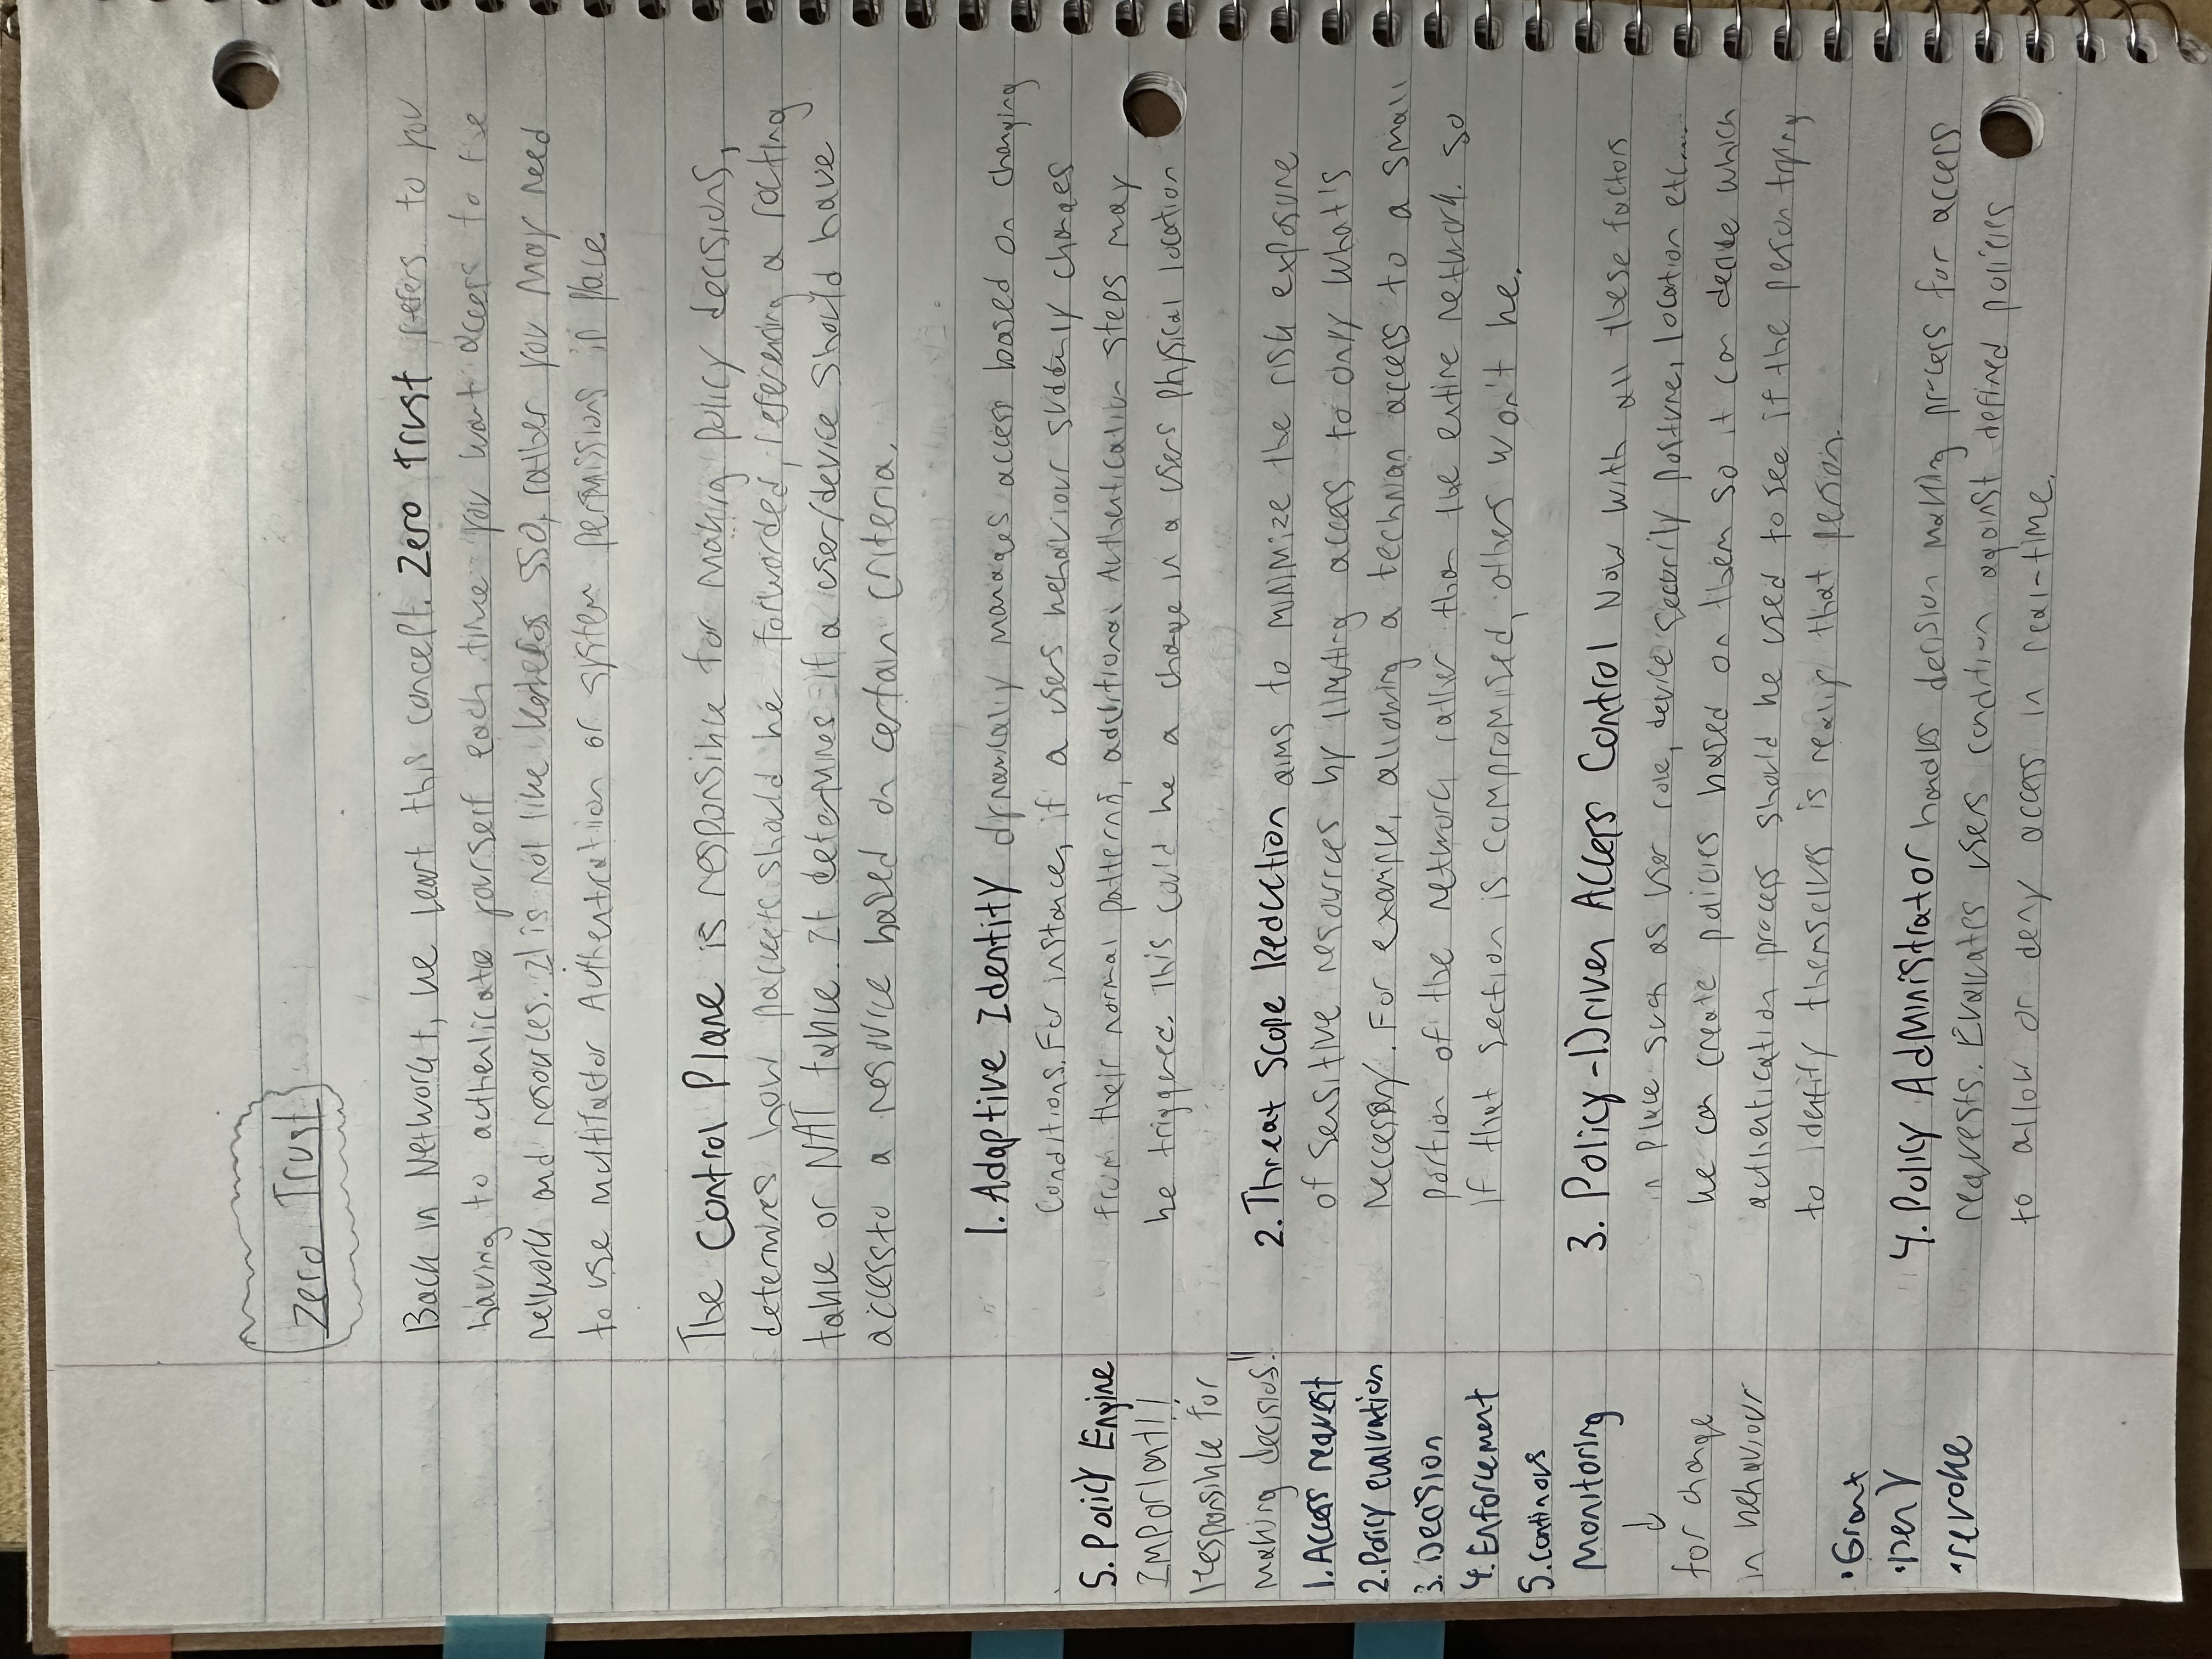 Zero Trust
Back in Network+, we leart this concept. Zero Trust refers to you
having to authenticate yourself each time you want access to the
network and resources. It is not like SSO, rather you may need
to use multifactor Authentication or system permissions in place.
The Control Plane is responsible for making policy decisions,
determines how packets should be forwarded, referencing a routing
table or NAT table. It determines if a user/device should have
access to a resource based on certain criteria.
1. Adaptive Identity dynamically manages access based on changing
Conditions. For instance, if a users behaviour suddenly changes
from their normal patterns, additional Authentication steps may
be triggered. This could be a change in a users physical location
2. Threat Scope Reduction aims to minimize the risk exposure
of sensitive resources by limiting access to only what's
neccesary. For example, allowing a technian access to a small
portion of the network rather than the entire network. So
if that section is compromised, others won't be.
3. Policy-Driven Access Control Now with all these factors
in place such as user role, device security posture, location etc....
we can create policies based on them so it can decide which
authentication process should be used to see if the person trying
to identify themselves is really that person.
4. Policy Administrator handles decision making process for access
requests. Evaluates users condition against defined policies
to allow or deny access in real-time.
5. Policy Engine
Important!!
Responsible for
making decisios!!
1. Access request
2. Policy evaluation
3. Decision
4. Enforcement
5. Continous
Monitoring
↓
for change
in behaviour
• Grant
• Deny
• revoke